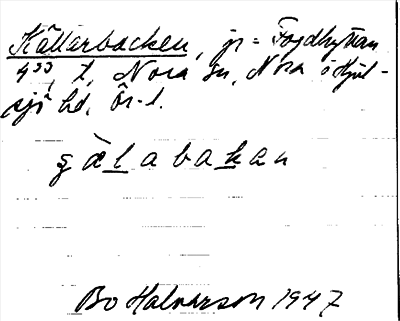 Källarbacken, jr = Fogdhyttan
4³³, t, Nora sn, Nora o Hjul-
sjö hd, Ör. l.
ʂàlabakan
Bo Halvarson 1947